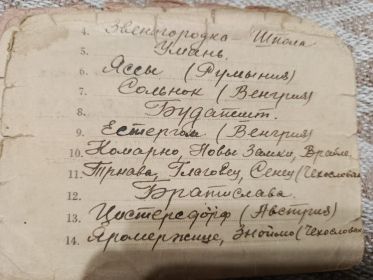 4. Звенигородка Школа
5. Умань.
6. Яссы (Румыния)
7. Сольнок (Венгрия)
8. Будапешт.
9. Естергом (Венгрия)
10. Комарно, Новы Замки, Врабле,
11. Трнава, Глаговец, Сенец (Чехословак
12. Братислава.
13. Цистерсдорф (Австрия)
14. Яромержице, Зноймо (Чехословак